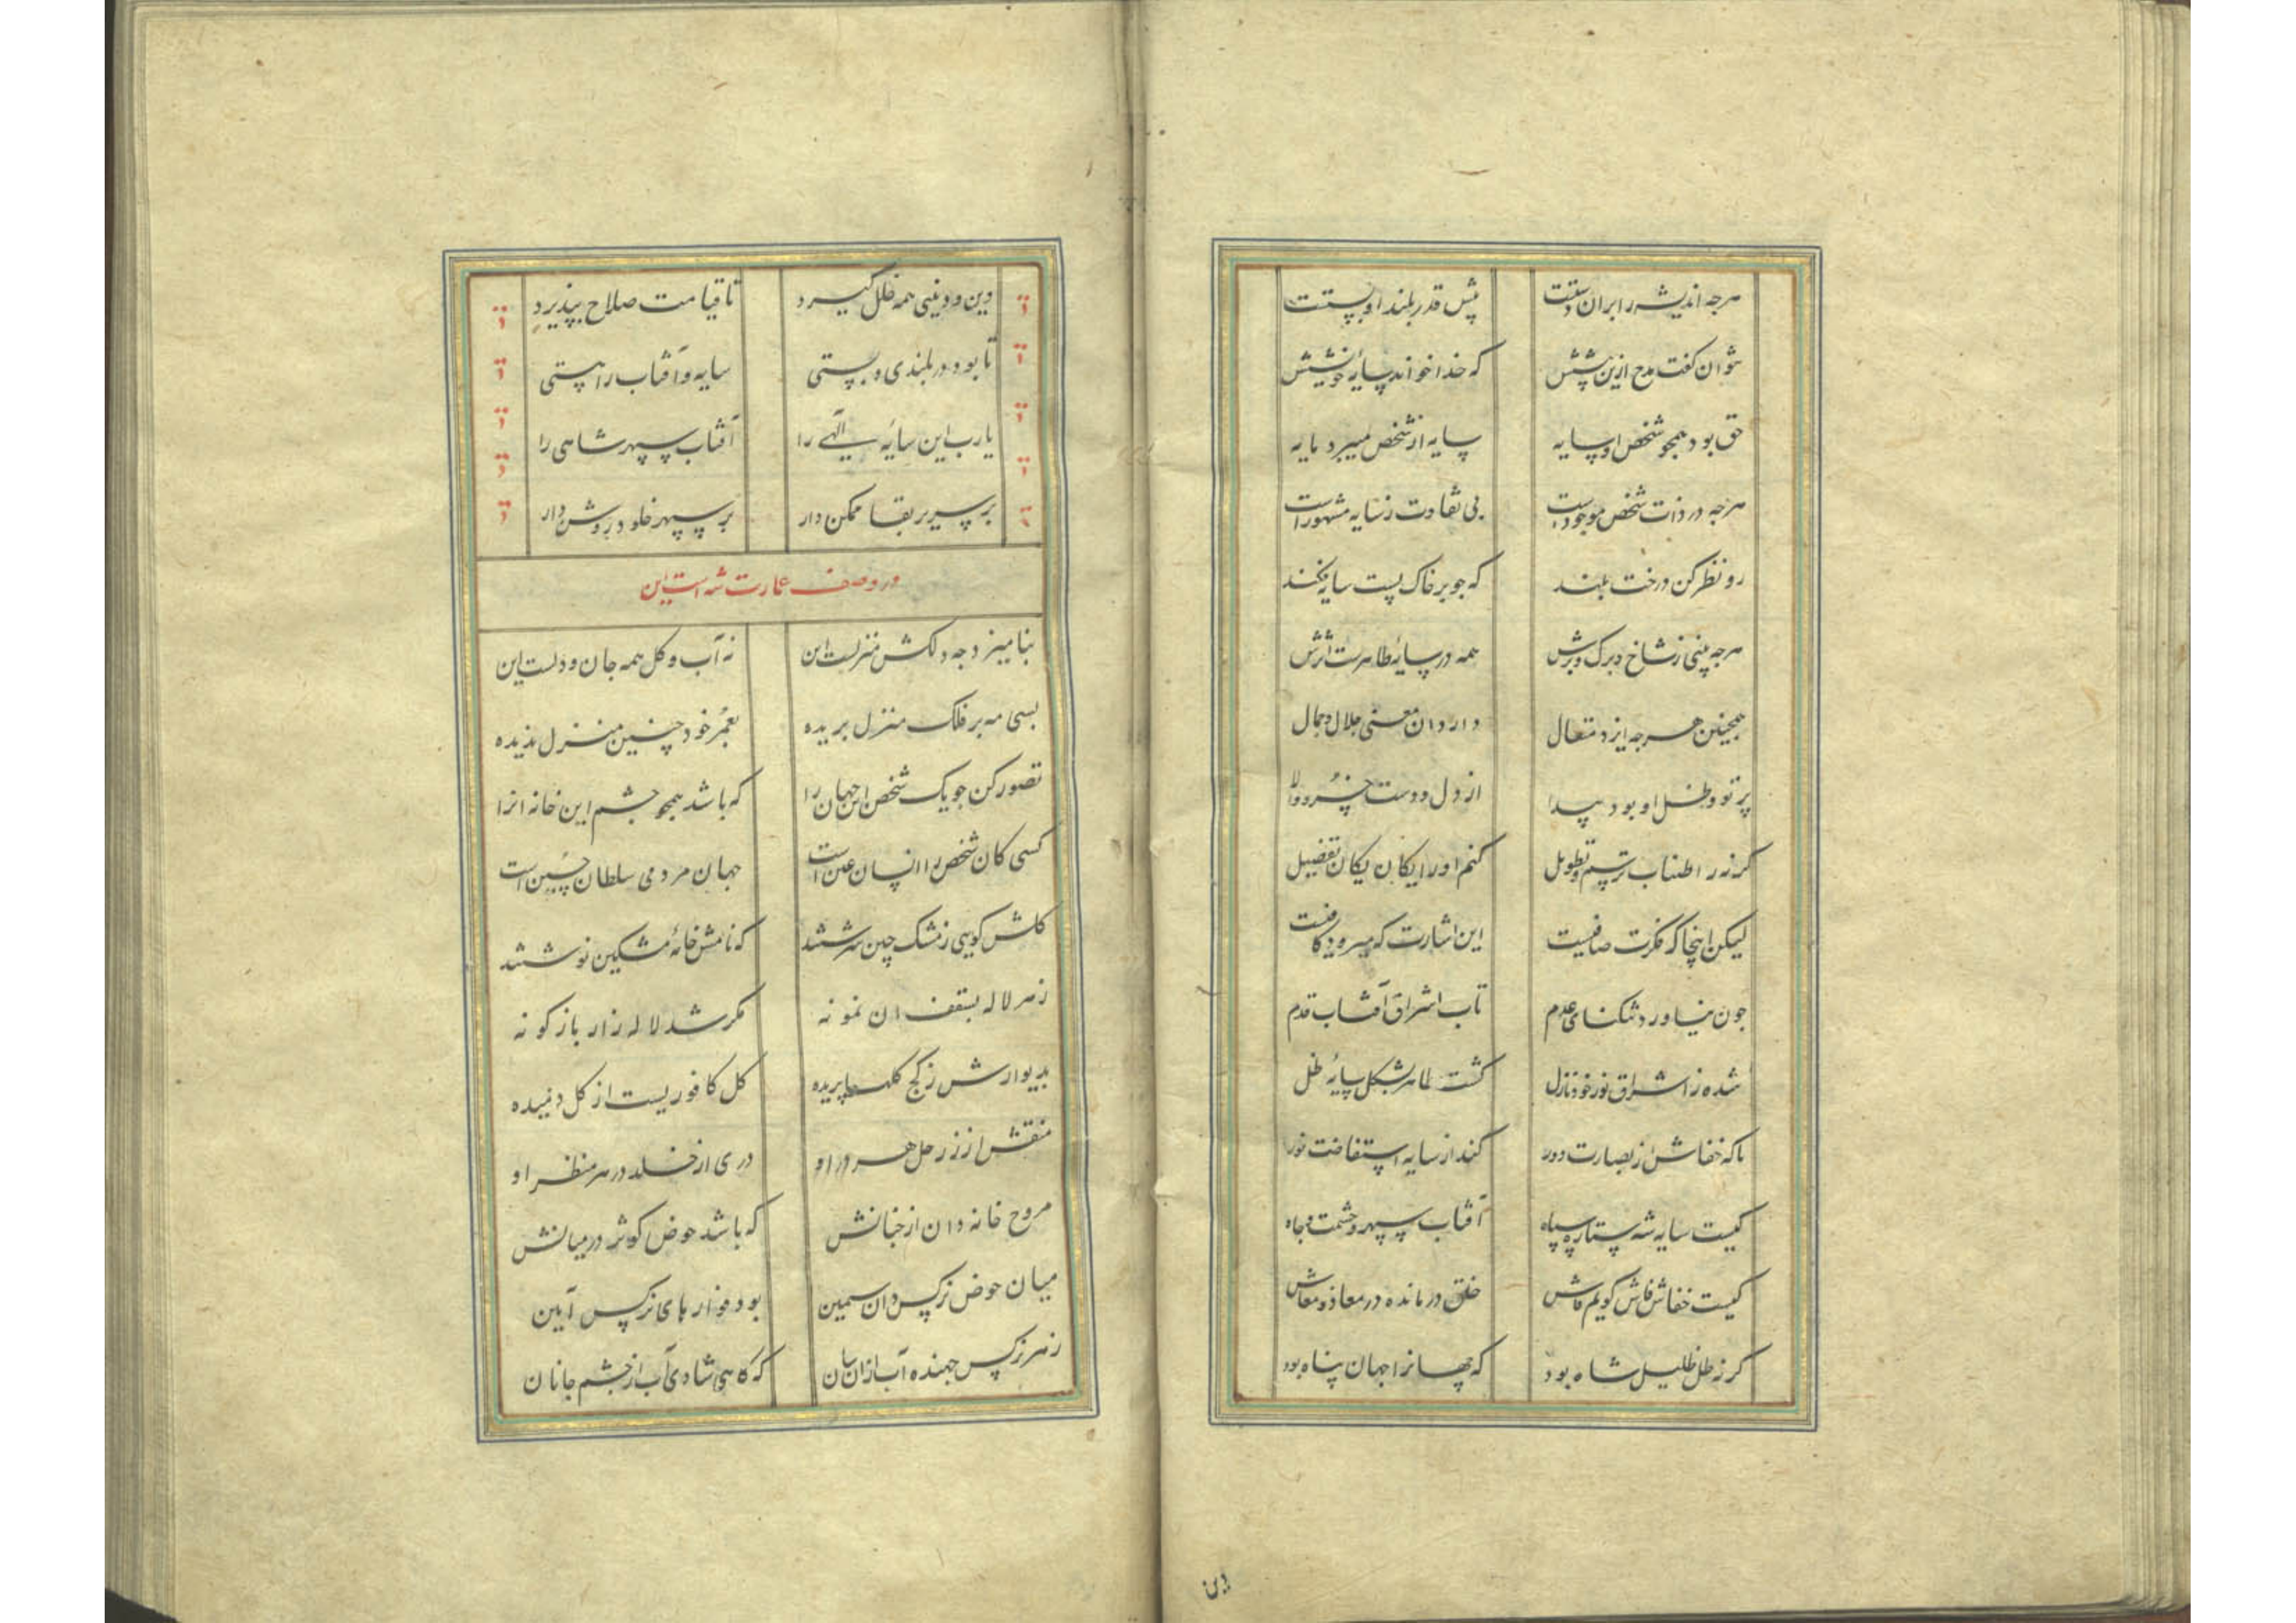 هرجه اندیشه را بران دستست پیش قدر بلند او پستست
نتوان گفت مدح ازین بیشش که خدا خواند سایهٔ خویشش
حق بود همجو شخص او سایه سایه از شخص میبرد مایه
هرجه در ذات شخص موجود است بی تفاوت ز سایه مشهود است
رو نظر کن درخت بلند که جو بر خاک پست سایه فکند
هرجه بینی ز شاخ و برگ و برش همه در سایهٔ ظاهرست اثرش
همجنین هرجه ایزد متعال دارد از معنی جلال و جمال
پرتو و ظل او بود پیدا از دل و دست خسرو والا
گر نه ز اطناب ترسم و تطویل کنم اورا یکان یکان تفصیل
لیکن اینجا که فکرت صافیست این اشارت که میرود کافیست
جون نیاورد تنگنای عدم تاب اشراق آفتاب قدم
شده ز اشراق نور خود نازل گشت ظاهر بشکل سایهٔ ظل
تا که خفاش از بصارت دور کند از سایه استفاضت نور
کیست سایه شه ستاره سپاه آفتاب سپهر حشمت و جاه
کیست خفاش فاش گویم فاش خلق درمانده در معاد و معاش
گر نه ظل ظلیل شاه بود که جهانرا جهان پناه بود
دین
دین و دنیی همه خلل گیرد تا قیامت صلاح نپذیرد
تا بود در بلندی و پستی سایه و آفتاب را هستی
یارب این سایهٔ الهی را آفتاب سپهر شاهی را
بر سریر بقا ممکن دار بر سپهر خلود روشن دار
در وصف عمارت شه است این
بنامیزد جه دلکش منزلست این نه آب و گل همه جان و دلست این
بسی مه بر فلک منزل بریده بعمر خود چنین منزل ندیده
تصور کن جو یک شخص این جهان را که باشد همجو جشم این خانه آنرا
کسی کان شخص را انسان عین است جهان مردمی سلطان حسین است
گلش گویی ز مشک چین سرشتند که نامش خانهٔ مشکین نوشتند
ز هر لاله بسقف آن نمونه مگر شد لاله زار باژگونه
بدیوارش ز گج گلها بریده گل کافوریست از گل دمیده
منقش از زر حل هر در او دری از خلد در هر منظر او
مروح خانه دان از جنانش که باشد حوض کوثر در میانش
میان حوض نرگس دان سیمین بود فواره‌های نرگس آیین
ز هر نرگس جهنده آب ازان سان که گاهی شادی آب از جشم جانان